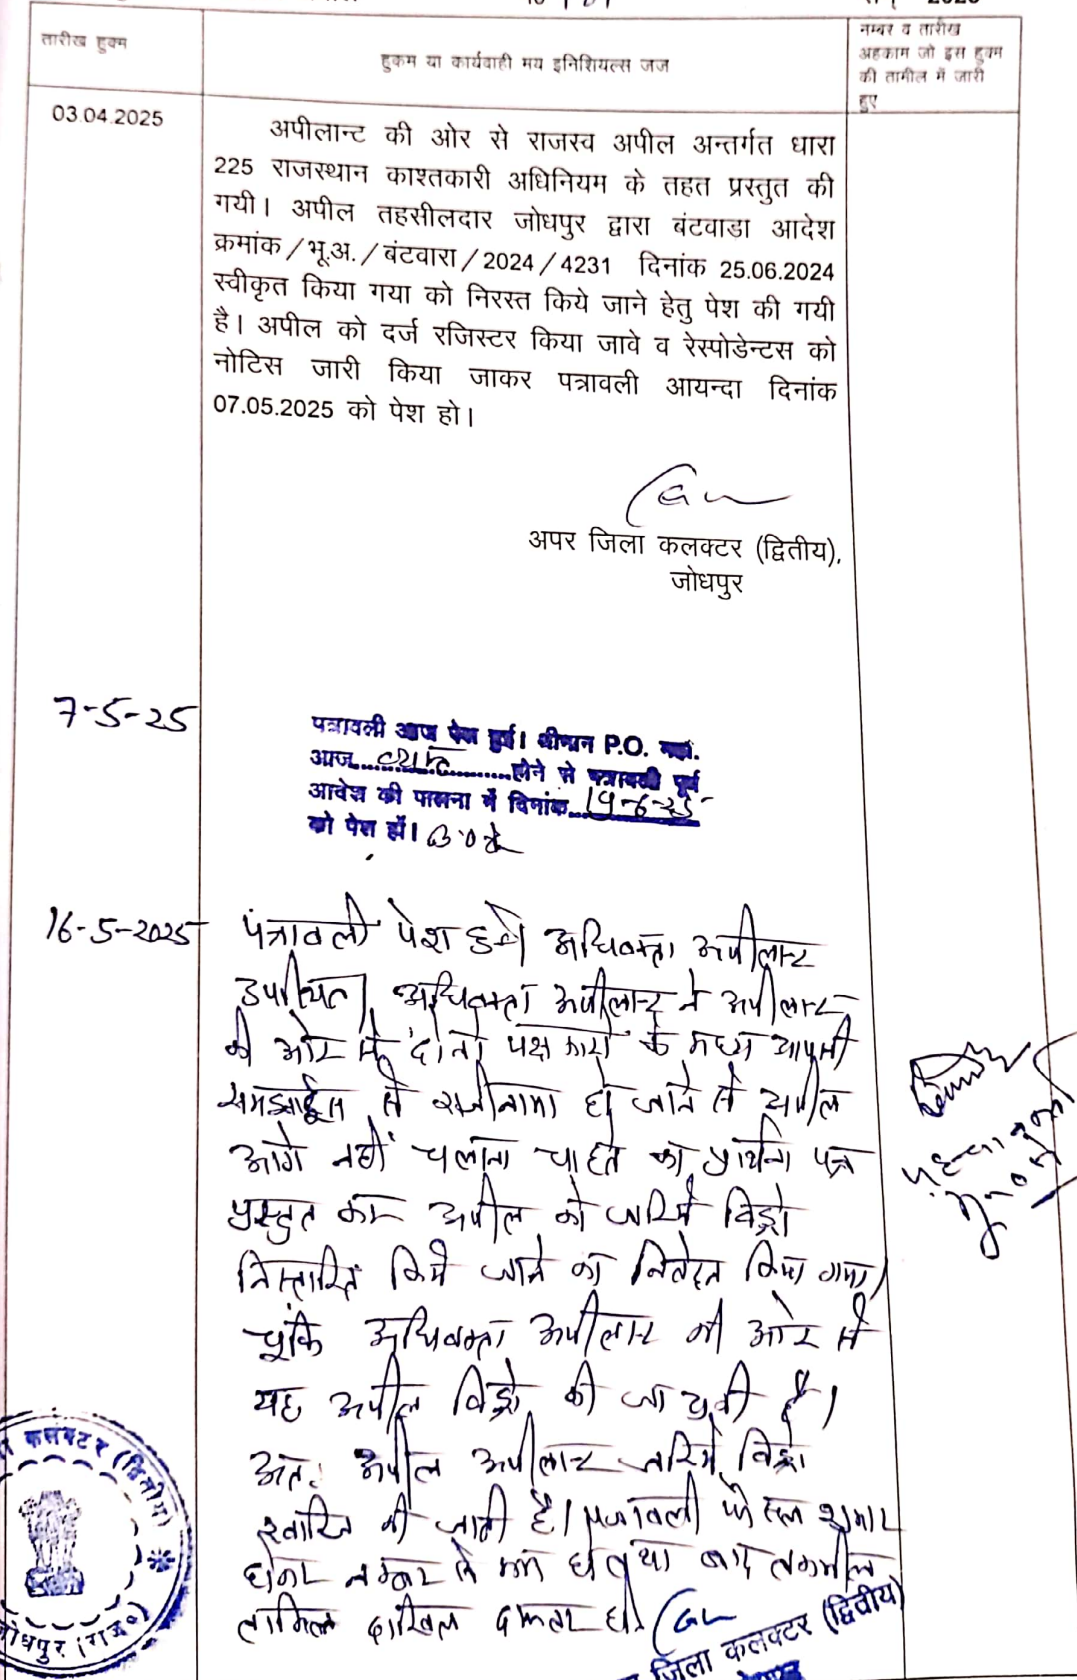 तारीख हुक्म
हुकम या कार्यवाही मय इनिशियल्स जज
नम्बर व तारीख
अहकाम जो इस हुक्म
की तामील में जारी
हुए
03.04.2025
अपीलान्ट की ओर से राजस्व अपील अन्तर्गत धारा
225 राजस्थान काश्तकारी अधिनियम के तहत प्रस्तुत की
गयी। अपील तहसीलदार जोधपुर द्वारा बंटवाडा आदेश
क्रमांक/भू.अ./बंटवारा/2024/4231 दिनांक 25.06.2024
स्वीकृत किया गया को निरस्त किये जाने हेतु पेश की गयी
है। अपील को दर्ज रजिस्टर किया जावे व रेस्पोडेन्टस को
नोटिस जारी किया जाकर पत्रावली आयन्दा दिनांक
07.05.2025 को पेश हो।
अपर जिला कलक्टर (द्वितीय),
जोधपुर
7-5-25
पत्रावली आज पेश हुई। श्रीमान P.O. महो.
आज..................होने से पत्रावली पूर्व
आदेश की पालना में दिनांक 19-6-25
को पेश हों।
16-5-2025
पत्रावली पेश हुई। अधिवक्ता अपीलान्ट
उपस्थित। अधिवक्ता अपीलान्ट ने अपीलान्ट
की ओर से दोनों पक्षकारों के मध्य आपसी
समझाईश से राजीनामा हो जाने से अपील
आगे नहीं चलाना चाहते का प्रार्थना पत्र
प्रस्तुत कर अपील को जरिये विड्रो
निस्तारित किये जाने का निवेदन किया गया।
चूंकि अधिवक्ता अपीलान्ट की ओर से
यह अपील विड्रो की जा चुकी है।
अतः अपील अपीलान्ट जरिये विड्रो
खारिज की जाती है। पत्रावली फैसल शुमार
होकर नम्बर से कम हो तथा बाद तकमील
दाखिल दफ्तर हो।
जिला कलक्टर (द्वितीय)
कलक्टर (द्वितीय)
जोधपुर (राज०)